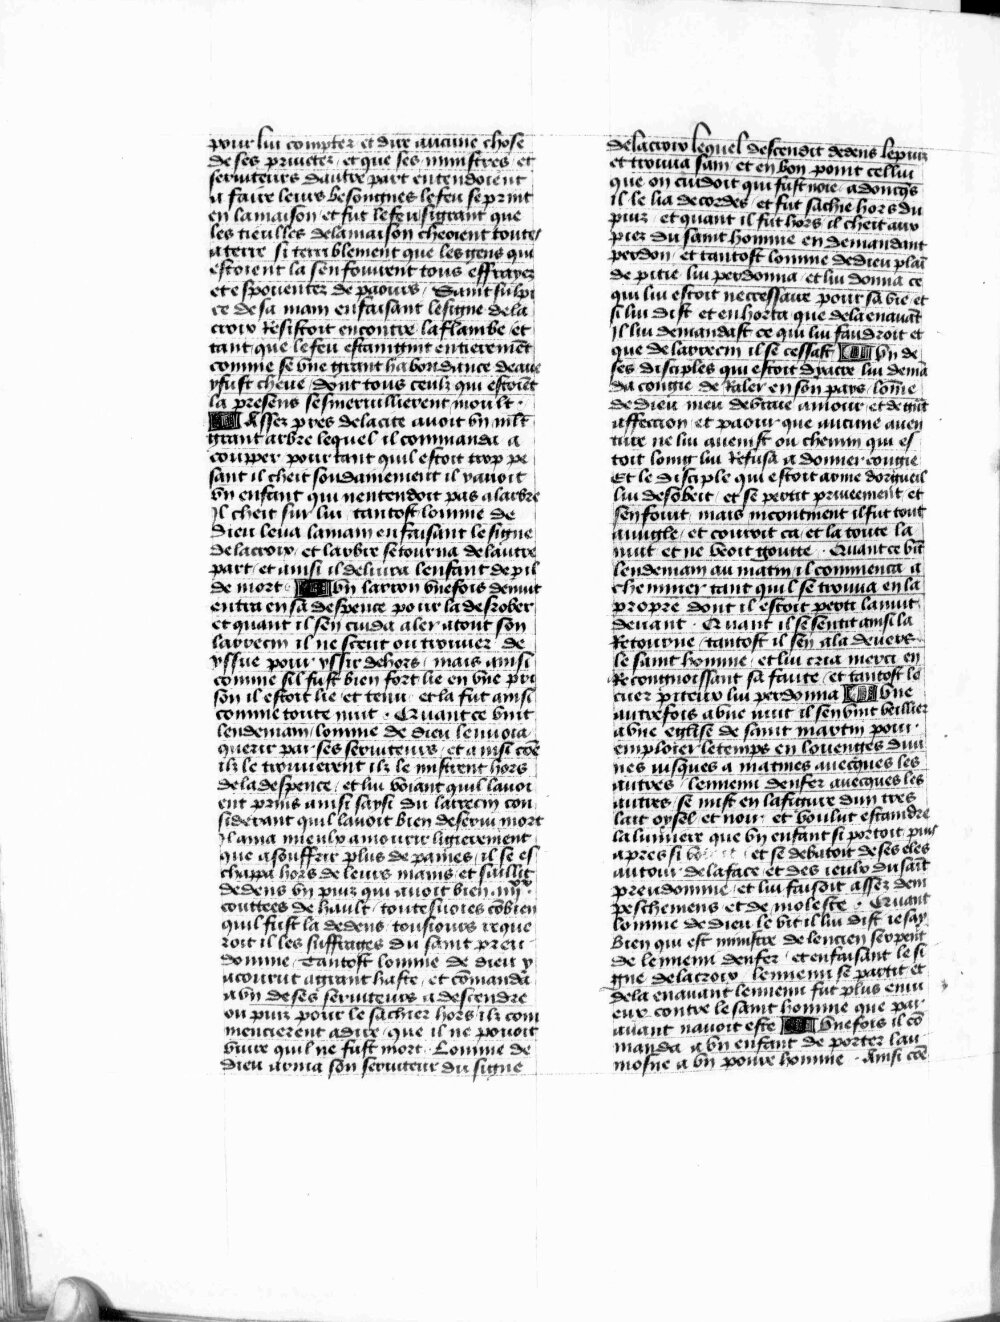 pour lui compter et dire aucune chose
de ses privetez / et que ses ministres et
serviteurs dautre part entendoient
a faire leurs besoingnes le feu se print
en la maison et fut le feu si grant que
les tieulles de la maison cheoient toutes
a terre si terriblement que les gens qui
estoient la sen fouirent tous effrayez
et espouentez de paours / Saint sulpi
ce de sa main en faisant le signe de la
croix Resistoit encontre la flambe / et
tant que le feu estaingnit entierement
comme se une grant habondance deaue
y fust cheue / dont tous ceulx qui estoient
la presens sesmerveillierent moult .
Assez pres de la cite avoit un mlt
grant arbre lequel il commanda a
coupper pour tant quil estoit trop pe
sant il cheit soudainement il y avoit
un enfant qui nentendoit pas a larbre
Il cheit sur lui / tantost lomme de
Dieu leva la main en faisant le signe
de la croix / et larbre se tourna de lautre
part / et ainsi il delivra lenfant de pil
de mort . Un larron une fois de nuit
entra en sa despence pour la desrober
et quant il sen cuida aler atout son
larrecin il ne sceut ou trouver de
yssue pour yssir dehors / mais ainsi
comme sil fust bien fort lie en une pri
son il estoit lie et tenu / et la fut ainsi
comme toute nuit . Quant ce vint
lendemain / lomme de dieu lenvoia
querir par ses serviteurs / et ainsi cõe
ilz le trouverent ilz le mistrent hors
de la despence / et lui voiant quil lavoi
ent prins ainsi saysi du larrecin con
siderant quil lavoit bien deservi mort
Il ama mieulx a mourir ligierement
que a souffrir plus de paines / il se es
chappa hors de leurs mains / et saillit
dedens un puiz qui avoit bien .iiij.xx.
couttees de hault / toutesvoies cõbien
quil fust la dedens / tousiours reque
roit il les suffrages du saint preu
domme / Tantost lomme de dieu y
acourut a grant haste / et cõmanda
a un de ses serviteurs a descendre
ou puiz pour le sachier hors ilz com
mencierent a dire / que il ne povoit
vivre quil ne fust mort . Lomme de
dieu arma son serviteur du signe
de la croix lequel descendit dedens le puiz
et trouva sain et en bon point cellui
que on cuidoit qui fust noie / adoncqs
il le lia de cordes / et fut sachie hors du
puiz / et quant il fut hors il cheit aux
piez du saint homme en demandant
perdon / et tantost lomme de dieu plai
de pitie lui perdonna / et lui donna ce
qui lui estoit neccessaire pour sa vie / et
si lui dist et enhorta que dela en avãt
il lui demandast ce qui lui faudroit et
que de larrecin il se cessast Un de
ses disciples qui estoit dyacre lui dema
da congie de Raler en son pays / lõme
de dieu meu de vraie amour / et de grãt
affection / et paour que aucune aven
ture ne lui avenist ou chemin qui es
toit loing lui Refusa a donner congie
Et le disciple qui estoit arme dorgueil
lui desobeit / et se partit priveement et
sen fouit / mais incontinent il fut tout
avugle / et couroit ca / et la toute la
nuit et ne veoit goutte . Quant ce vit
lendemain au matin / il commenca a
cheminer tant quil se trouva en la
propre dont il estoit parti la nuit
devant . Quant il se sentit ainsi la
Retourne / tantost il sen ala devers
le saint homme / et lui cria merci en
Recongnoissant sa faute / et tantost le
cuer piteux lui perdonna Une
autrefois a une nuit il sen vint veillier
a une eglise de saint martin pour
emploier le temps en louenges divi
nes iusques a matines avecques les
autres / lennemi denfer avecques les
autres / se mist en la figure dun tres
lait oysel et noir / et voulut estaindre
la lumiere que un enfant si portoit / puis
apres si / et se debatoit de ses eles
autour de la face / et des ieulx du saït
preudomme / et lui faisoit assez dem
peschemens et de moleste . Quant
lomme de dieu le vit il lui dist ie say
bien qui est ministre de lencien serpent
de lennemi denfer / et en faisant le si
gne de la croix / lennemi se partit et
dela en avant lennemi fut plus envi
eux contre le saint homme que par
avant navoit este Une fois il cõ
manda a un enfant de porter lau
mosne a un povre homme . Ainsi cõe